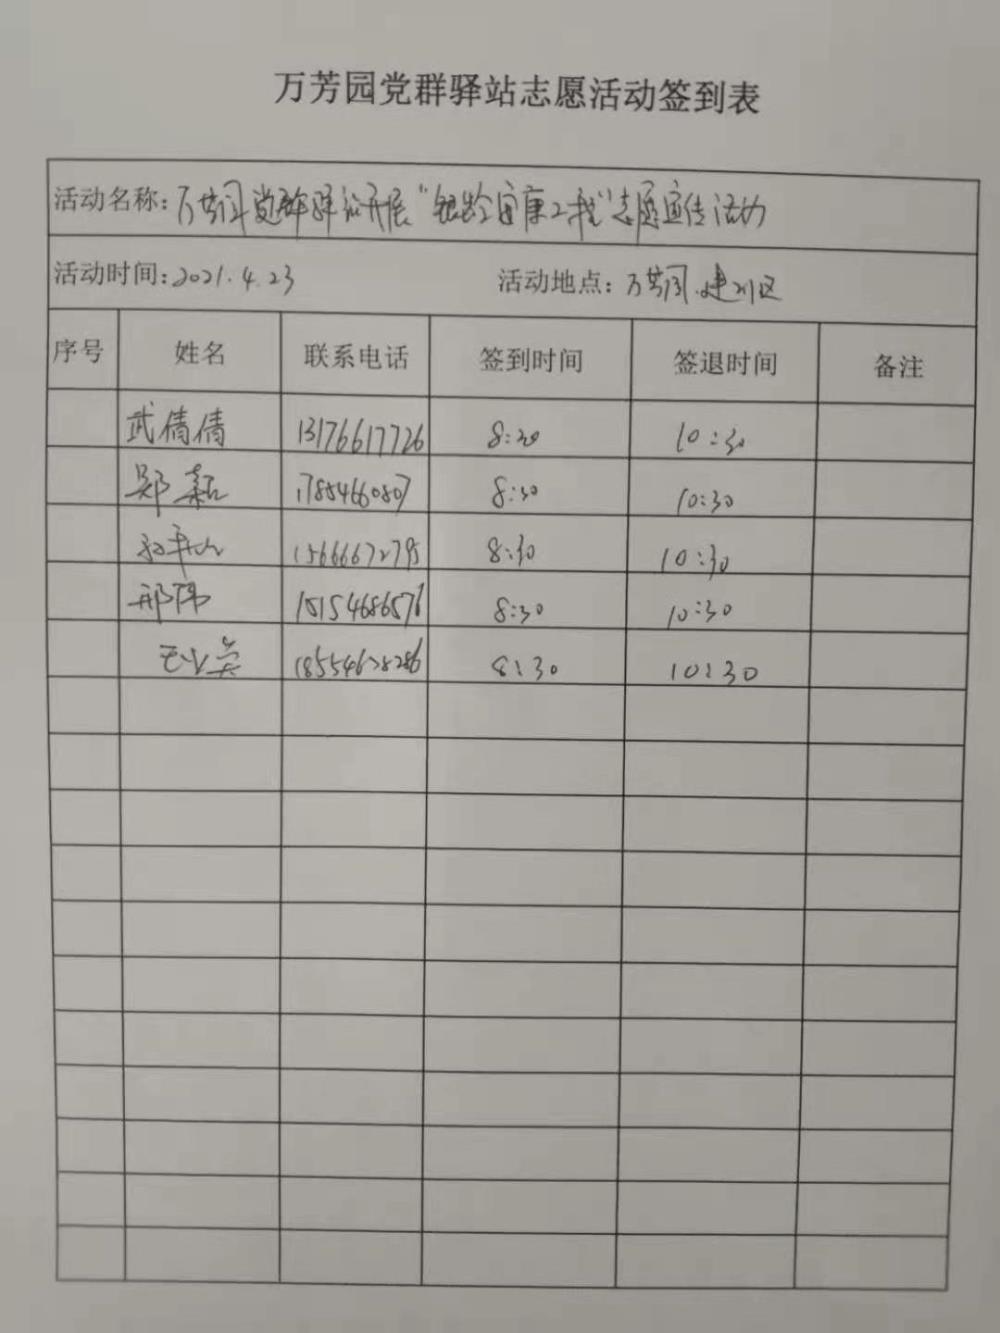 万芳园党群驿站志愿活动签到表
活动名称:万芳园党群驿站开展"银龄安康工程"志愿宣传活动
活动时间:2021.4.23 活动地点:万芳园.建川区
序号 姓名 联系电话 签到时间 签退时间 备注
武倩倩 13176617726 8:30 10:30
郑 17854660807 8:30 10:30
15666672795 8:30 10:30
邢伟 15154686576 8:30 10:30
18554628286 8:30 10:30